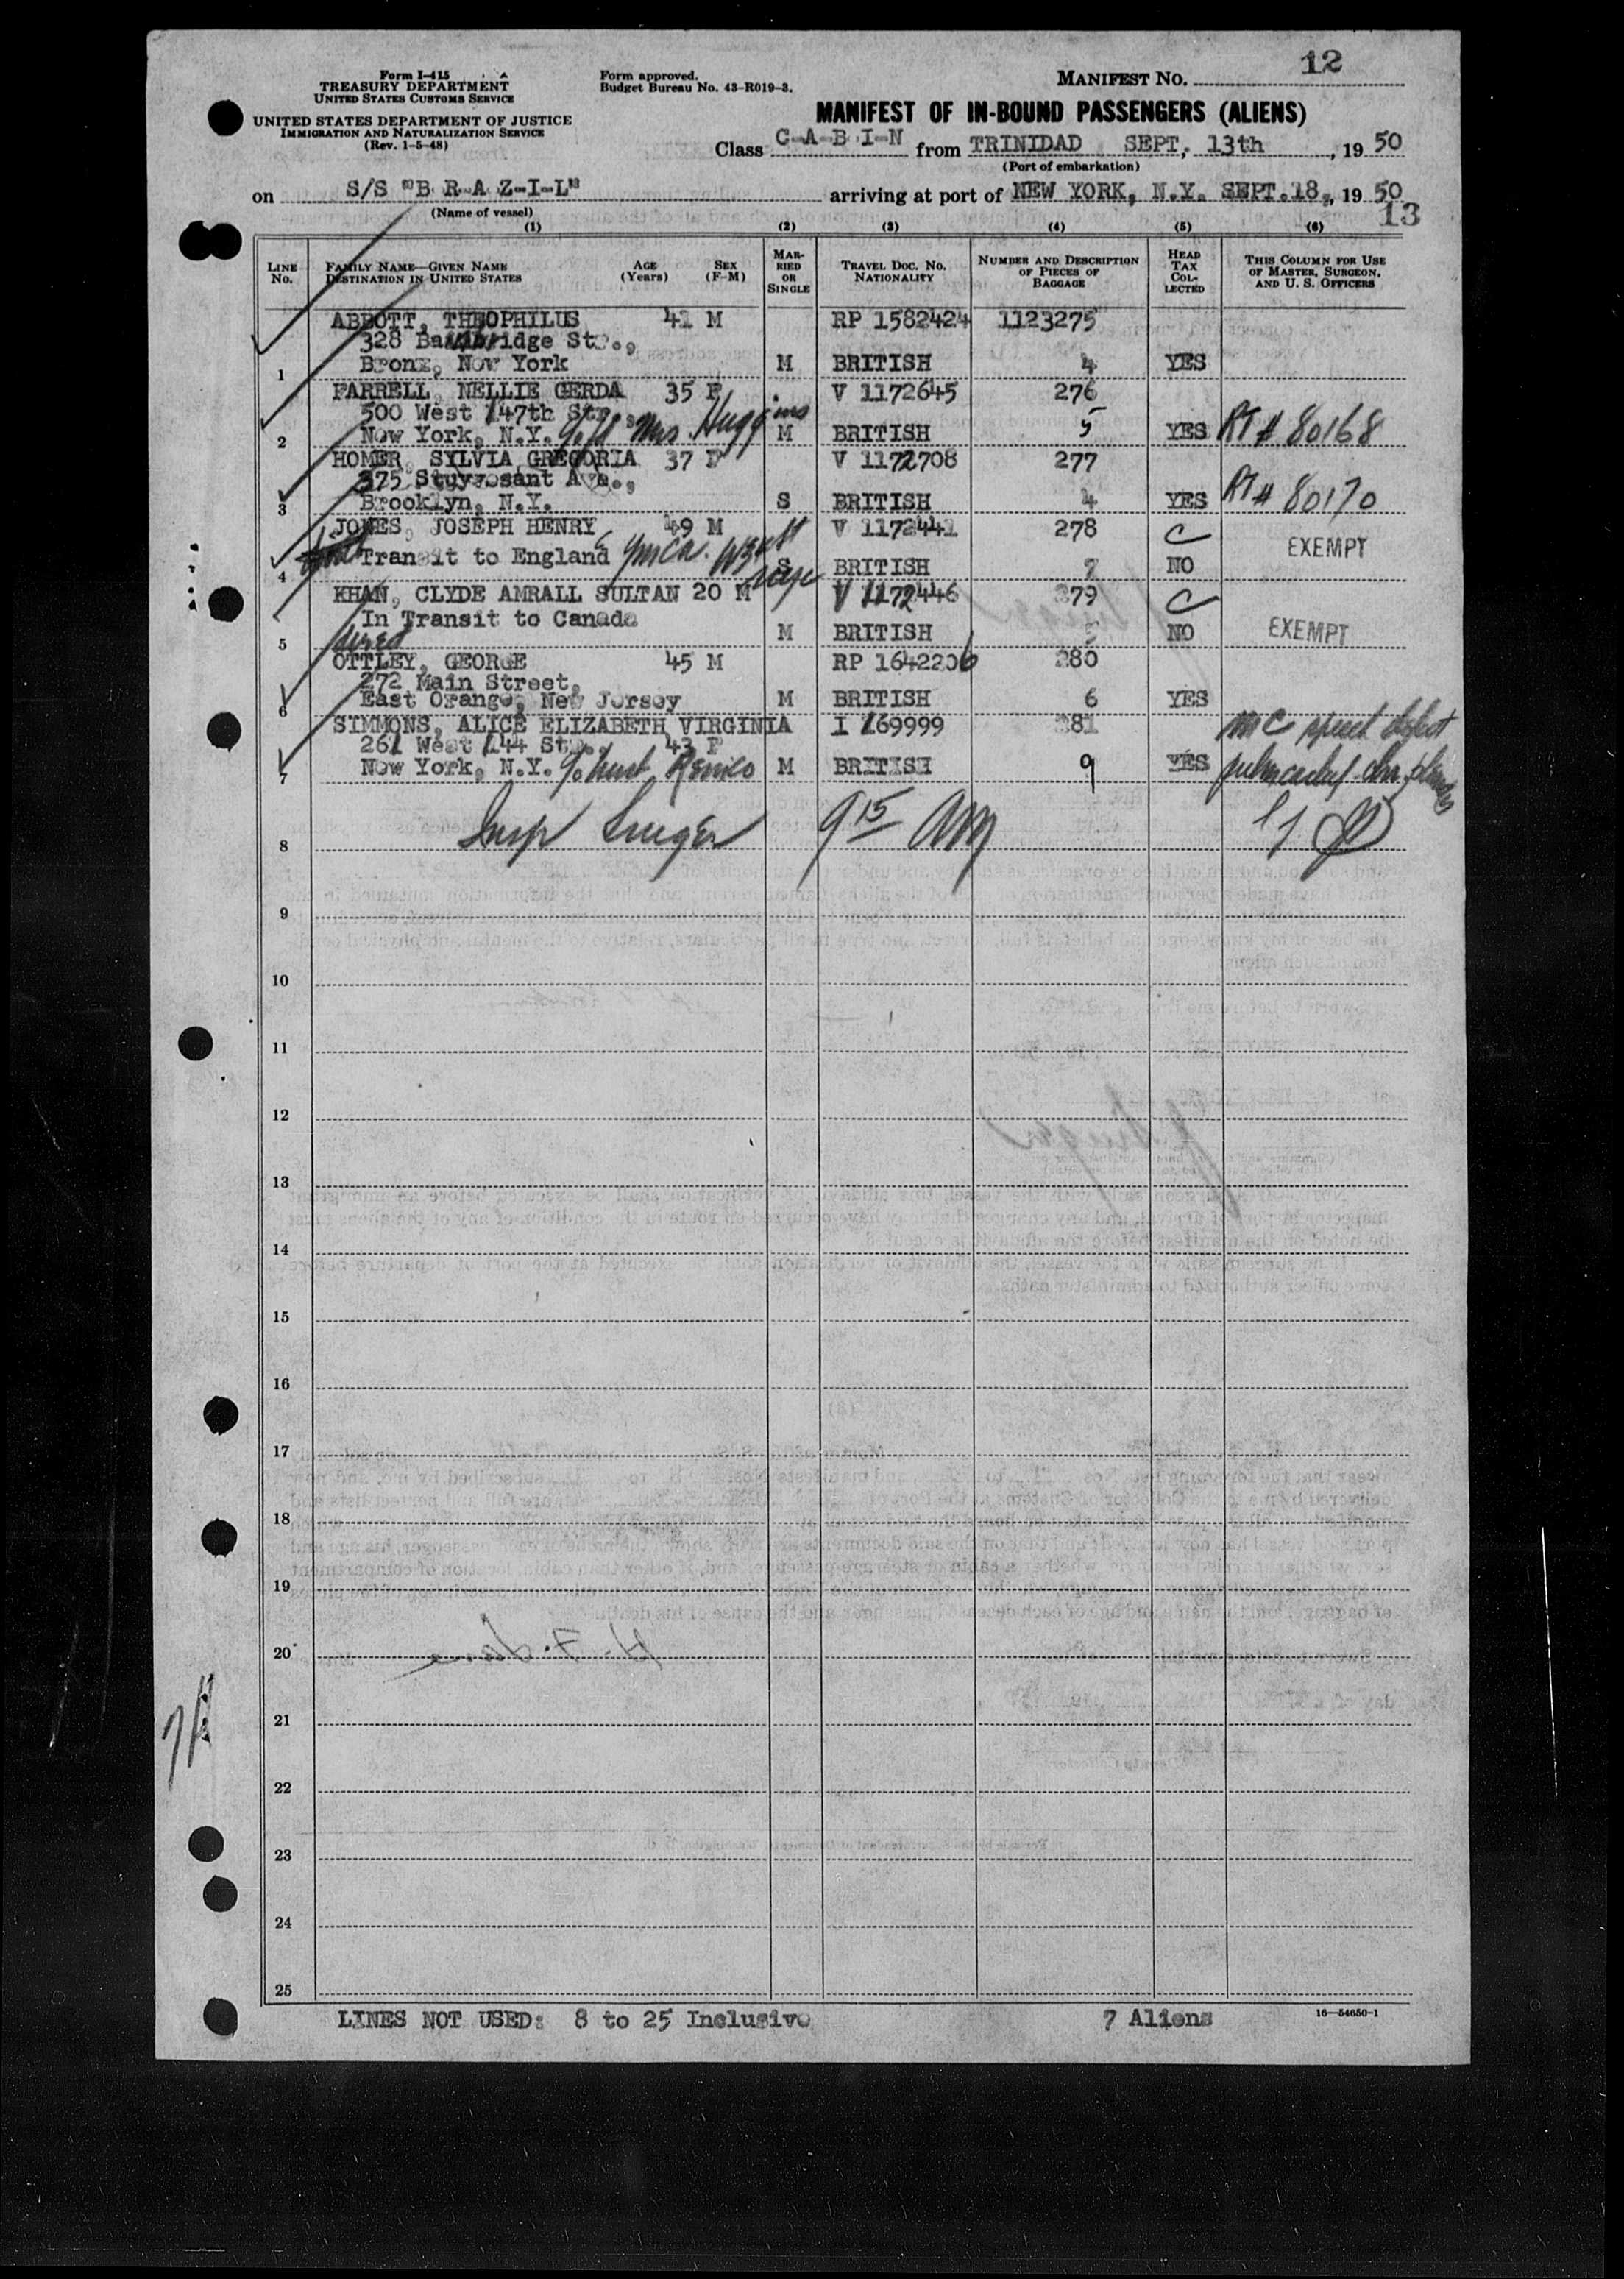 Form I-415
TREASURY DEPARTMENT
UNITED STATES CUSTOMS SERVICE
UNITED STATES DEPARTMENT OF JUSTICE
IMMIGRATION AND NATURALIZATION SERVICE
(Rev. 1-5-48)
Form approved.
Budget Bureau No. 43-R019-3.
MANIFEST NO. 12
MANIFEST OF IN-BOUND PASSENGERS (ALIENS)
Class C-A-B-I-N from TRINIDAD SEPT. 13th, 1950
(Port of embarkation)
on S/S "B R A Z-I-L" arriving at port of NEW YORK, N.Y. SEPT.18, 1950
(Name of vessel)
13
(1) (2) (3) (4) (5) (6)
LINE No. FAMILY NAME—GIVEN NAME DESTINATION IN UNITED STATES AGE (Years) SEX (F-M) MARRIED OR SINGLE TRAVEL DOC. NO. NATIONALITY NUMBER AND DESCRIPTION OF PIECES OF BAGGAGE HEAD TAX COLLECTED THIS COLUMN FOR USE OF MASTER, SURGEON, AND U. S. OFFICERS
ABBOTT, THEOPHILUS 41 M RP 1582424 1123275
328 Bainbridge St.,
1 Bronx, New York M BRITISH 4 YES
FARRELL, NELLIE GERDA 35 F V 1172645 276
500 West 147th St.
2 New York, N.Y. Mrs. Huggins M BRITISH 5 YES RT # 80168
HOMER, SYLVIA GREGORIA 37 F V 1172708 277
375 Stuyvesant Ave.,
3 Brooklyn, N.Y. S BRITISH 4 YES RT # 80170
JONES, JOSEPH HENRY 49 M V 1172441 278 C
4 Transit to England YMCA. W 34 St S BRITISH 7 NO EXEMPT
KHAN, CLYDE AMRALL SULTAN 20 M V 1172446 279 C
In Transit to Canada
5 M BRITISH 5 NO EXEMPT
OTTLEY, GEORGE 45 M RP 1642206 280
272 Main Street,
6 East Orange, New Jersey M BRITISH 6 YES
SIMMONS, ALICE ELIZABETH VIRGINIA I 169999 281
261 West 144 St. 43 F
7 New York, N.Y. M BRITISH 9 YES
8 Insp 9 15 AM
9
10
11
12
13
14
15
16
17
18
19
20
21
22
23
24
25
LINES NOT USED: 8 to 25 Inclusive 7 Aliens 16—54650-1